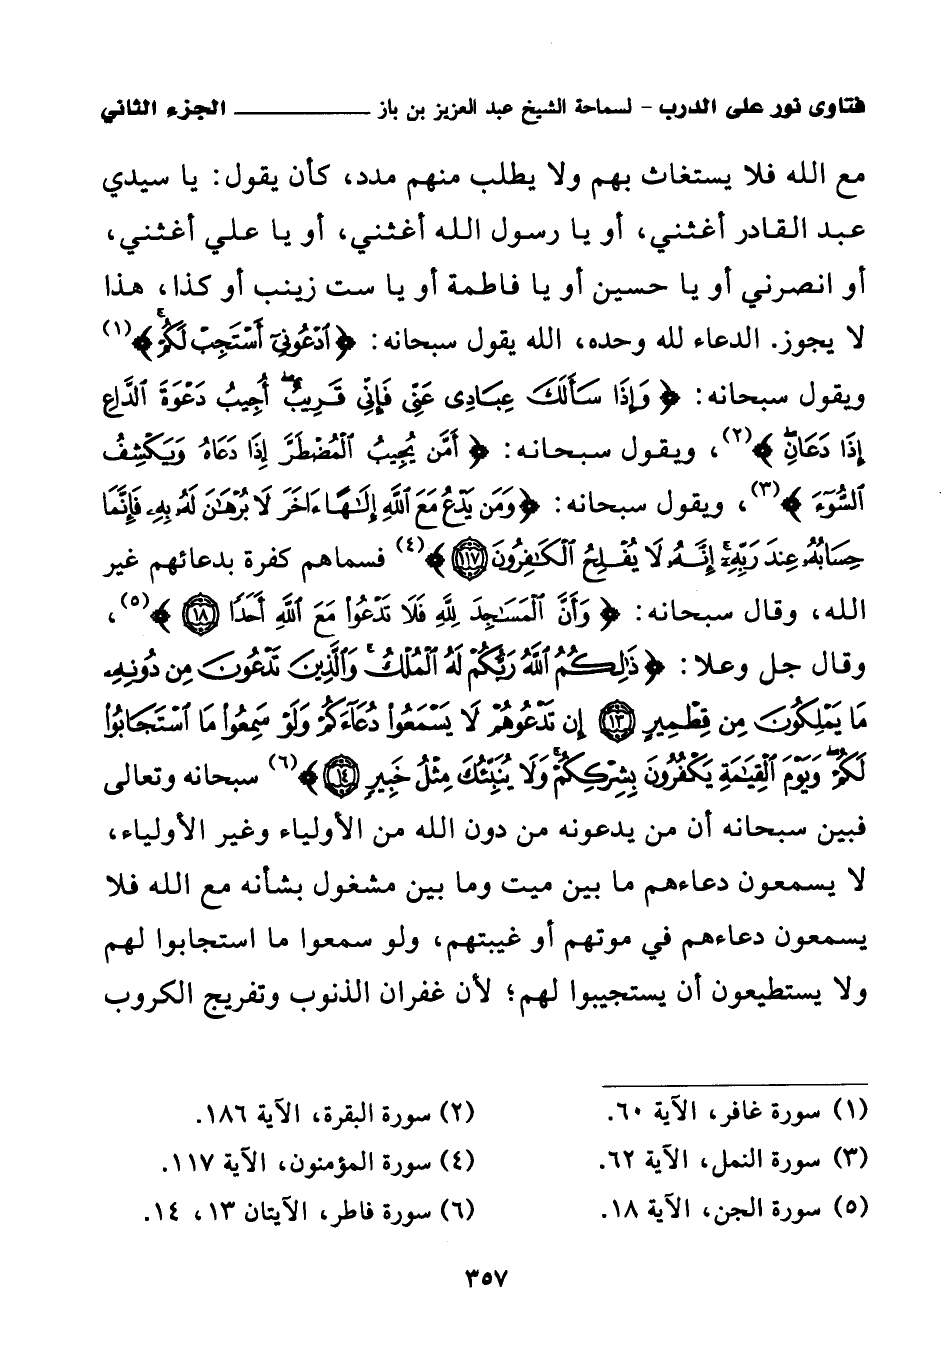 فتاوى نور على الدرب - لسماحة الشيخ عبد العزيز بن باز ــــــــــــــ الجزء الثاني
مع الله فلا يستغاث بهم ولا يطلب منهم مدد، كأن يقول: يا سيدي
عبد القادر أغثني، أو يا رسول الله أغثني، أو يا علي أغثني،
أو انصرني أو يا حسين أو يا فاطمة أو يا ست زينب أو كذا، هذا
لا يجوز. الدعاء لله وحده، الله يقول سبحانه: ﴿ٱدْعُونِىٓ أَسْتَجِبْ لَكُمْ﴾(١)
ويقول سبحانه: ﴿وَإِذَا سَأَلَكَ عِبَادِى عَنِّى فَإِنِّى قَرِيبٌ أُجِيبُ دَعْوَةَ ٱلدَّاعِ
إِذَا دَعَانِ﴾(٢)، ويقول سبحانه: ﴿أَمَّن يُجِيبُ ٱلْمُضْطَرَّ إِذَا دَعَاهُ وَيَكْشِفُ
ٱلسُّوٓءَ﴾(٣)، ويقول سبحانه: ﴿وَمَن يَدْعُ مَعَ ٱللَّهِ إِلَٰهًا ءَاخَرَ لَا بُرْهَٰنَ لَهُۥ بِهِۦ فَإِنَّمَا
حِسَابُهُۥ عِندَ رَبِّهِۦٓ إِنَّهُۥ لَا يُفْلِحُ ٱلْكَٰفِرُونَ ١١٧﴾(٤) فسماهم كفرة بدعائهم غير
الله، وقال سبحانه: ﴿وَأَنَّ ٱلْمَسَٰجِدَ لِلَّهِ فَلَا تَدْعُوا۟ مَعَ ٱللَّهِ أَحَدًا ١٨﴾(٥)،
وقال جل وعلا: ﴿ذَٰلِكُمُ ٱللَّهُ رَبُّكُمْ لَهُ ٱلْمُلْكُ وَٱلَّذِينَ تَدْعُونَ مِن دُونِهِۦ
مَا يَمْلِكُونَ مِن قِطْمِيرٍ ١٣ إِن تَدْعُوهُمْ لَا يَسْمَعُوا۟ دُعَآءَكُمْ وَلَوْ سَمِعُوا۟ مَا ٱسْتَجَابُوا۟
لَكُمْ وَيَوْمَ ٱلْقِيَٰمَةِ يَكْفُرُونَ بِشِرْكِكُمْ وَلَا يُنَبِّئُكَ مِثْلُ خَبِيرٍ ١٤﴾(٦) سبحانه وتعالى
فبين سبحانه أن من يدعونه من دون الله من الأولياء وغير الأولياء،
لا يسمعون دعاءهم ما بين ميت وما بين مشغول بشأنه مع الله فلا
يسمعون دعاءهم في موتهم أو غيبتهم، ولو سمعوا ما استجابوا لهم
ولا يستطيعون أن يستجيبوا لهم؛ لأن غفران الذنوب وتفريج الكروب
(١) سورة غافر، الآية ٦٠. (٢) سورة البقرة، الآية ١٨٦.
(٣) سورة النمل، الآية ٦٢. (٤) سورة المؤمنون، الآية ١١٧.
(٥) سورة الجن، الآية ١٨. (٦) سورة فاطر، الآيتان ١٣، ١٤.
٣٥٧